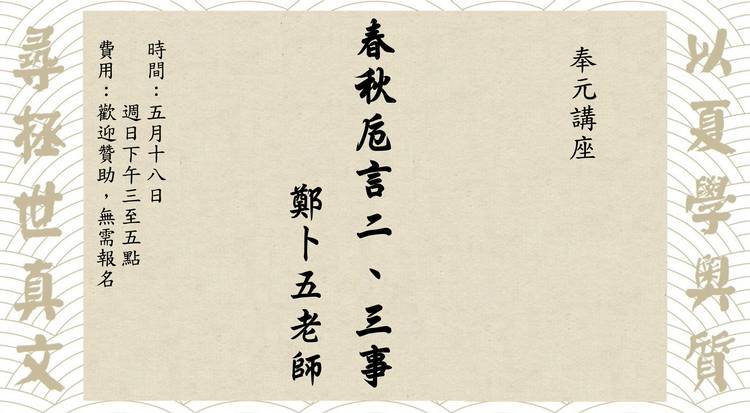 以夏學奧質
奉元講座
春秋卮言二、三事
鄭卜五老師
時間：五月十八日
週日下午三至五點
費用：歡迎贊助，無需報名
尋拯世真文